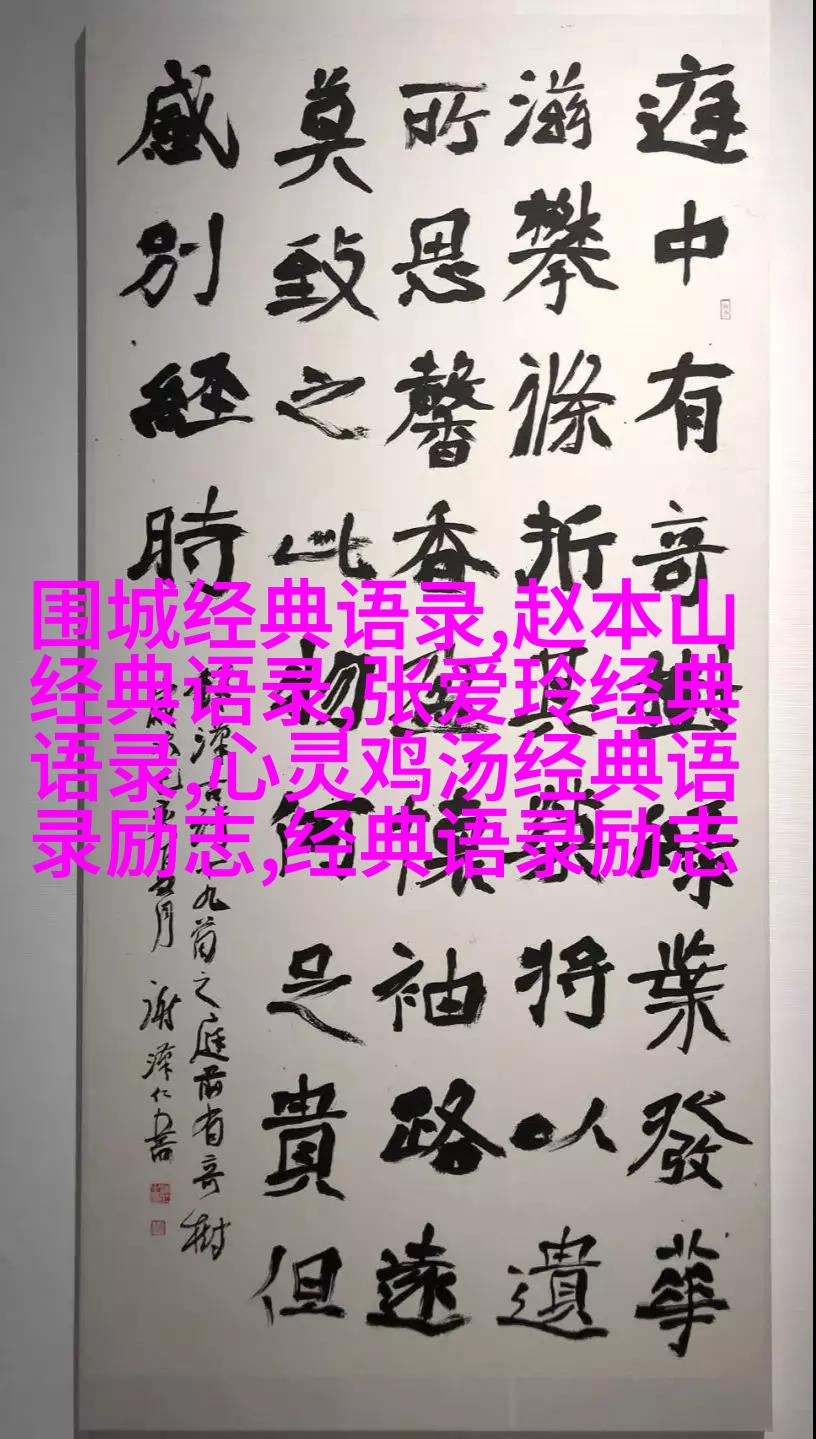 庭中有奇樹綠葉發華
滋攀條折其榮將以遺
所思馨香盈懷袖路遠
莫致之此物何足貴但
感別經時
九首之庭前有奇樹
月 謝澤仁書
围城经典语录,赵本山
经典语录,张爱玲经典
语录,心灵鸡汤经典语
录励志,经典语录励志